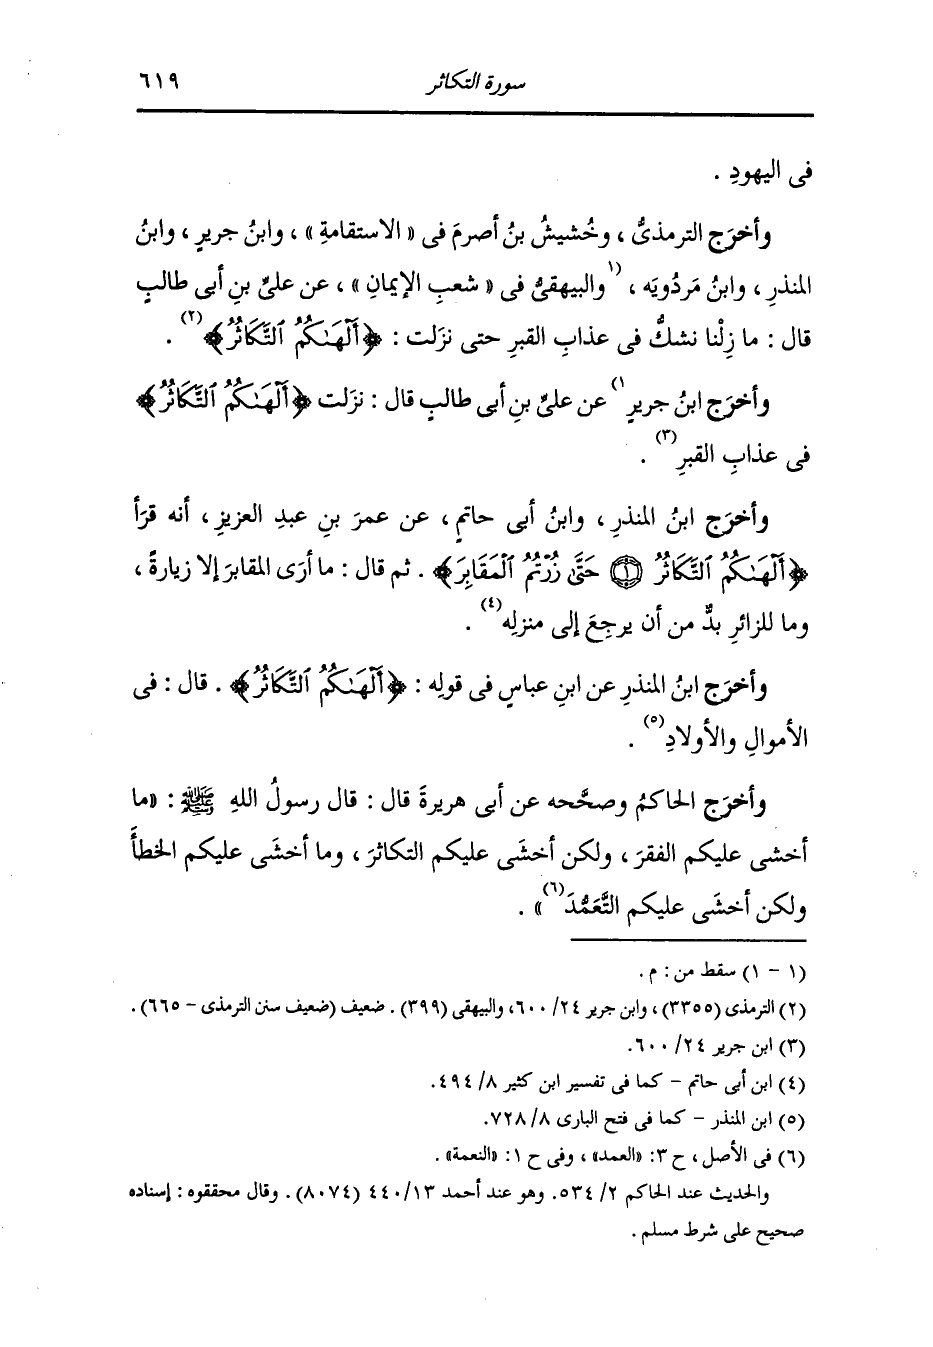 سورة التكاثر ٦١٩
فى اليهودِ .
وأخرَج الترمذىُّ ، وخُشيشُ بنُ أصرمَ فى « الاستقامةِ » ، وابنُ جريرٍ ، وابنُ
المنذرِ ، وابنُ مَردُويَه ، (١والبيهقىُّ فى « شعبِ الإيمانِ » ، عن علىِّ بنِ أبى طالبٍ
قال : ما زِلْنا نشكُّ فى عذابِ القبرِ حتى نزَلت : ﴿أَلْهَىٰكُمُ ٱلتَّكَاثُرُ﴾(٢) .
وأخرَج ابنُ جريرٍ١) عن علىِّ بنِ أبى طالبٍ قال : نزَلت ﴿أَلْهَىٰكُمُ ٱلتَّكَاثُرُ﴾
فى عذابِ القبرِ(٣) .
وأخرَج ابنُ المنذرِ ، وابنُ أبى حاتمٍ ، عن عمرَ بنِ عبدِ العزيزِ ، أنه قرَأ
﴿أَلْهَىٰكُمُ ٱلتَّكَاثُرُ ۝١ حَتَّىٰ زُرْتُمُ ٱلْمَقَابِرَ﴾ . ثم قال : ما أرَى المقابرَ إلا زيارةً ،
وما للزائرِ بدٌّ من أن يرجِعَ إلى منزلِه(٤) .
وأخرَج ابنُ المنذرِ عن ابنِ عباسٍ فى قولِه : ﴿أَلْهَىٰكُمُ ٱلتَّكَاثُرُ﴾ . قال : فى
الأموالِ والأولادِ(٥) .
وأخرَج الحاكمُ وصحَّحه عن أبى هريرةَ قال : قال رسولُ اللهِ ﷺ : «ما
أخشى عليكم الفقرَ ، ولكن أخشَى عليكم التكاثرَ ، وما أخشَى عليكم الخطأَ
ولكن أخشَى عليكم التَّعَمُّدَ(٦)» .
(١ - ١) سقط من : م .
(٢) الترمذى (٣٣٥٥) ، وابن جرير ٢٤/ ٦٠٠، والبيهقى (٣٩٩) . ضعيف (ضعيف سنن الترمذى - ٦٦٥) .
(٣) ابن جرير ٢٤/ ٦٠٠.
(٤) ابن أبى حاتم - كما فى تفسير ابن كثير ٨/ ٤٩٤.
(٥) ابن المنذر - كما فى فتح البارى ٨/ ٧٢٨.
(٦) فى الأصل ، ح ٣: «العمد» ، وفى ح ١: «النعمة» .
والحديث عند الحاكم ٢/ ٥٣٤. وهو عند أحمد ١٣/ ٤٤٠ (٨٠٧٤) . وقال محققوه : إسناده
صحيح على شرط مسلم .